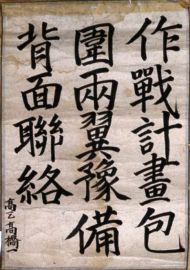 作戰計畫包
圍兩翼豫備
背面聯絡
高乙 高橋一